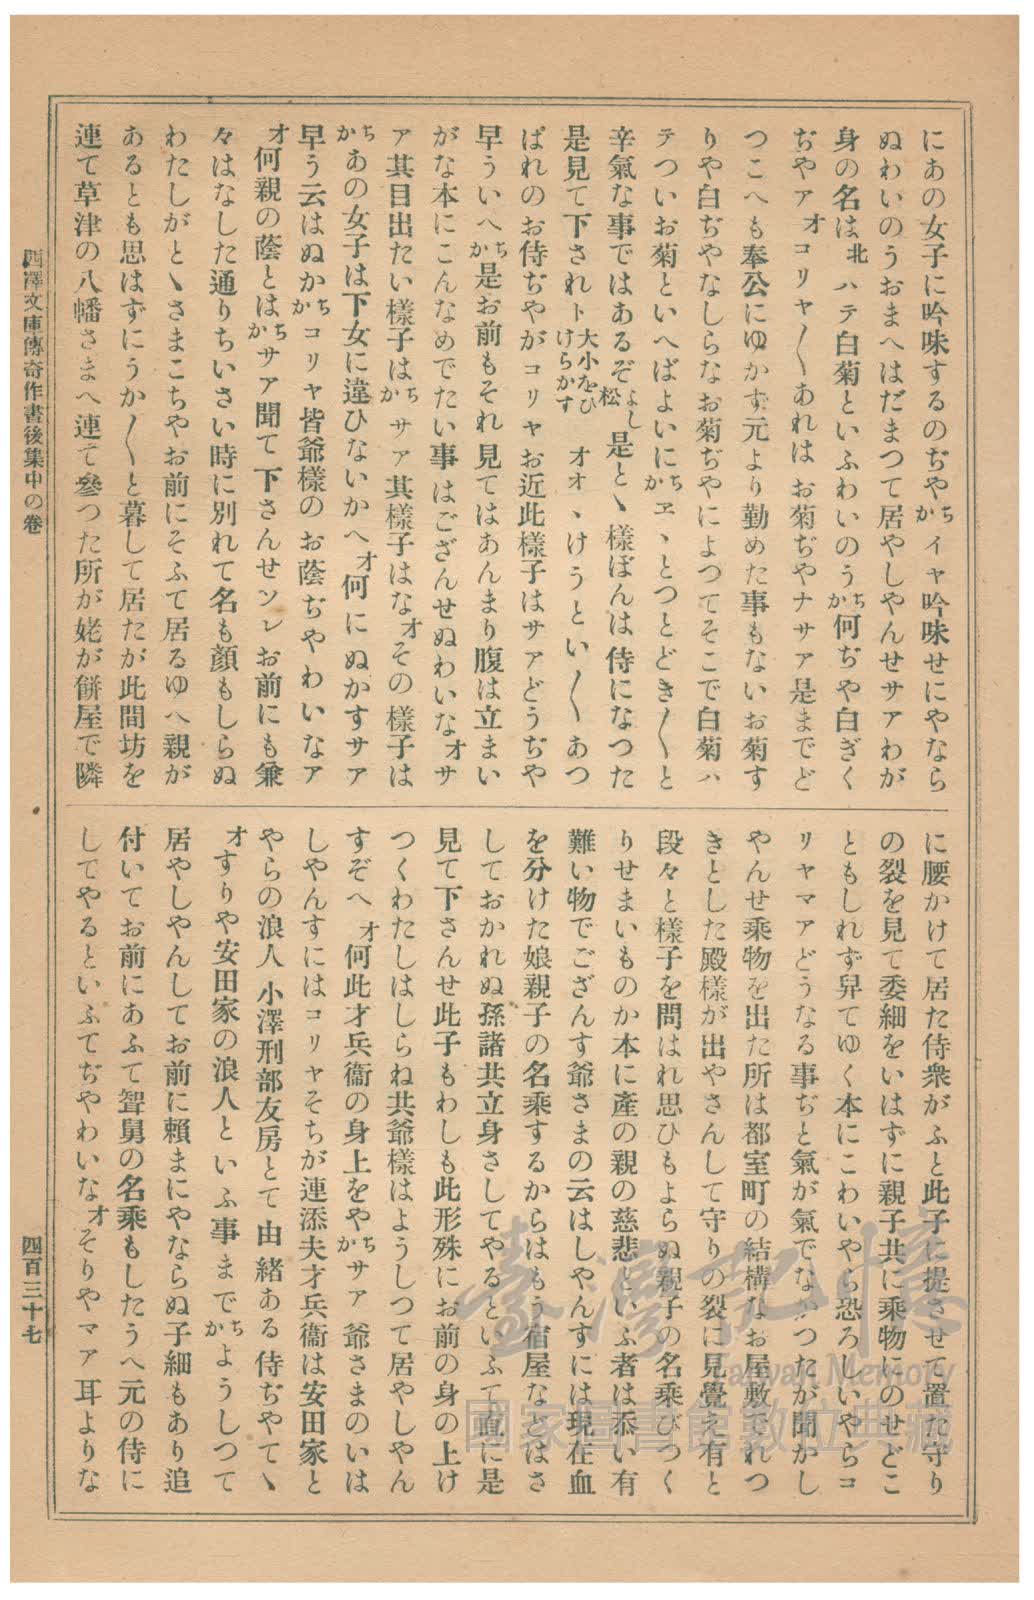 にあの女子に吟味するのぢやかちイヤ吟味せにやなら
ぬわいのうおまへはだまつて居やしやんせサアわが
身の名は北ハテ白菊といふわいのうかち何ぢや白ぎく
ぢやアオコリヤ〳〵あれはお菊ぢやナサア是までど
つこへも奉公にゆかず元より勤めた事もないお菊す
りや白ぢやなしらなお菊ぢやによつてそこで白菊ハ
テついお菊といへばよいにかちヱヽとつとどき〳〵と
辛氣な事ではあるぞ松よし是とヽ樣ぼんは侍になつた
是見て下されト大小をひけらかすオオヽけうとい〳〵あつ
ぱれのお侍ぢやがコリヤお近此樣子はサアどうぢや
早ういへかち是お前もそれ見てはあんまり腹は立まい
がな本にこんなめでたい事はござんせぬわいなオサ
ア其目出たい樣子はかちサア其樣子はなオその樣子は
かちあの女子は下女に違ひないかへオ何にぬかすサア
早う云はぬかかちコリヤ皆爺樣のお蔭ぢやわいなア
オ何親の蔭とはかちサア聞て下さんせソレお前にも兼
々はなした通りちいさい時に別れて名も顏もしらぬ
わたしがとヽさまこちやお前にそふて居るゆへ親が
あるとも思はずにうか〳〵と暮して居たが此間坊を
連て草津の八幡さまへ連て參つた所が姥が餅屋で隣
に腰かけて居た侍衆がふと此子に提させて置た守り
の裂を見て委細をいはずに親子共に乘物にのせどこ
ともしれず舁てゆく本にこわいやら恐ろしいやらコ
リヤマアどうなる事ぢと氣が氣でなかつたが聞かし
やんせ乘物を出た所は都室町の結構なお屋敷でれつ
きとした殿樣が出やさんして守りの裂に見覺え有と
段々と樣子を問はれ思ひもよらぬ親子の名乘びつく
りせまいものか本に產の親の慈悲といふ者は忝い有
難い物でござんす爺さまの云はしやんすには現在血
を分けた娘親子の名乘するからはもう宿屋などはさ
しておかれぬ孫諸共立身さしてやるといふて直に是
見て下さんせ此子もわしも此形殊にお前の身の上け
つくわたしはしらね共爺樣はようしつて居やしやん
すぞへオ何此才兵衞の身上をやかちサア爺さまのいは
しやんすにはコリヤそちが連添夫才兵衞は安田家と
やらの浪人小澤刑部友房とて由緒ある侍ぢやてヽ
オすりや安田家の浪人といふ事までかちようしつて
居やしやんしてお前に賴まにやならぬ子細もあり追
付いてお前にあふて聟舅の名乘もしたうへ元の侍に
してやるといふてぢやわいなオそりやマア耳よりな
西澤文庫傳奇作書後集中の卷
四百三十七
臺灣記憶
Taiwan Memory
國家圖書館數位典藏